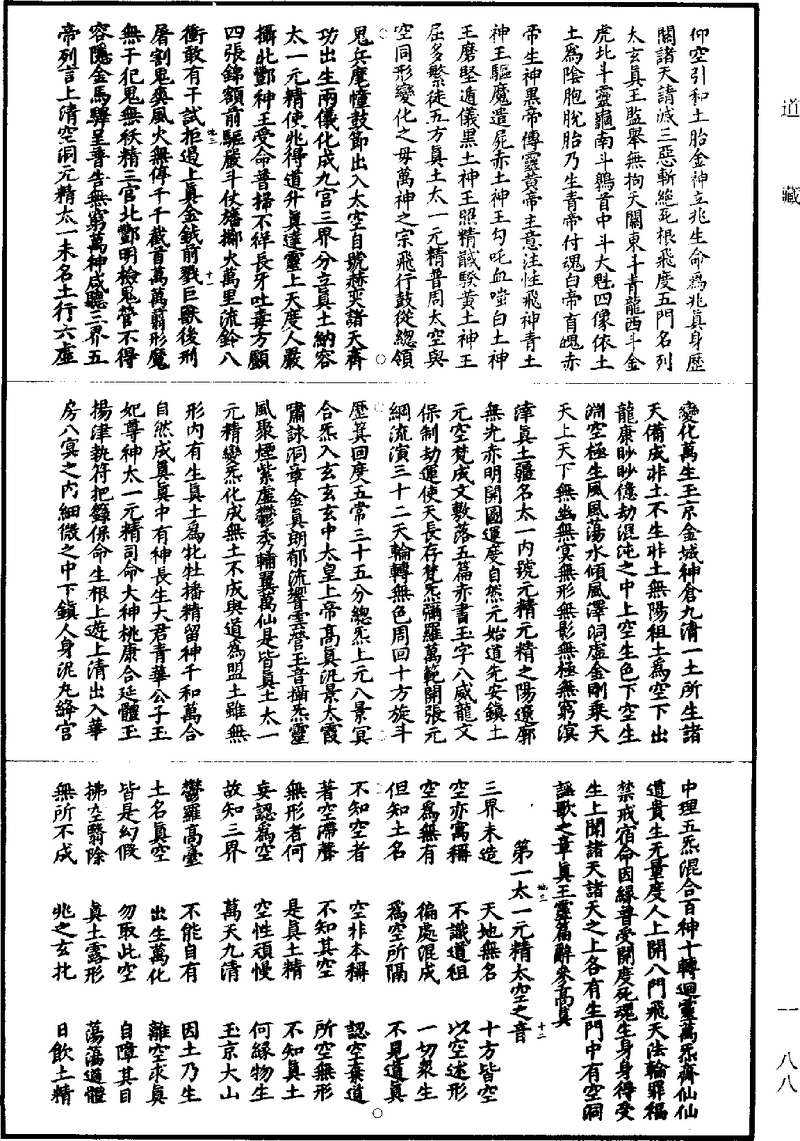 道藏
一八八
仰空引和土胎金神立兆生命爲兆真身歷
關諸天請滅三惡斬絕死根飛度五門名列
太玄真王監舉無拘天關東斗青龍西斗金
虎北斗靈龜南斗鶉首中斗大魁四像依土
土爲陰胞胱胎乃生青帝付魂白帝育魄赤
帝生神黑帝傳靈黄帝主意注性飛神青土
神王驅魔遣屍赤土神王勾吒血㗲白土神
王磨堅遁儀黑土神王照精諴騤黄土神王
屈多繁徒五方真土太一元精普周太空與
空同形變化之母萬神之宗飛行鼓從總領
鬼兵麾幢鼓節出入太空自號赫奕諸天齊
功出生兩儀化成九宫三界分立真土納容
太一元精使兆得道升真達靈上天度人嚴
攝北酆神王受命普掃不祥長牙吐毒方顱
四張錦額前驅嚴斗仗旛擲火萬里流鈴八
衝敢有干試拒遏上真金鉞前戮巨猒後刑
屠割鬼爽風火無停千千截首萬萬翦形魔
無干犯鬼無秩精三官北酆明檢鬼營不得
容隱金馬驛呈普告無窮萬神咸聽三界五
帝列言上清空洞元精太一未名土行六虛
變化萬生玉京金城神倉九清一土所生諸
天備成非土不生非土無陽祖土爲空下出
龍康眇眇億劫混沌之中上空生色下空生
淵空極生風風蕩水傾風澤洞虛金剛乘天
天上天下無幽無冥無形無影無極無窮溟
涬真土疆名太一内號元精元精之陽遼廓
無光赤明開圖運度自然元始道先安鎮土
元空梵成文敷落五篇赤書玉字八威龍文
保制劫運使天長存梵炁彌羅萬範開張元
綱流演三十二天輪轉無色周回十方旋斗
歷箕回度五常三十五分總炁上元八景冥
合炁入玄玄玄中太皇上帝高真汎景太霞
嘯詠洞章金真朗郁流響雲營玉音攝炁靈
風聚煙紫虛鬱秀輔翼萬仙是皆真土太一
元精變炁化成無土不成與道爲盟土雖無
形内有生真土爲牝牡播精留神千和萬合
自然成真真中有神長生大君青華公子玉
妃尊神太一元精司命大神桃康合延體玉
揚津執符把籙保命生根上遊上清出入華
房八冥之内細微之中下鎮人身泥丸絳宫
中理五炁混合百神十轉迴靈萬炁齊仙仙
道貴生无量度人上開八門飛天法輪罪福
禁戒宿命因緣普受開度死魂生身身得受
生上聞諸天諸天之上各有生門中有空洞
謡歌之章真王靈篇辭參高真
第一太一元精太空之音
三界未造　天地無名　十方皆空
空亦寓稱　不識道祖　以空述形
空爲無有　徧處混成　一切衆生
但知土名　爲空所隔　不見道真
不知空者　空非本稱　認空棄道
著空滯聲　不知其空　所空無形
無形者何　是真土精　不知真土
妄認爲空　空性頑慢　何緣物生
故知三界　萬天九清　玉京大山
鬱羅高臺　不能自有　因土乃生
土名真空　出生萬化　離空求真
皆是幻假　勿取此空　自障其目
拂空翳除　真土露形　蕩蕩道體
無所不成　兆之玄牝　日飲土精